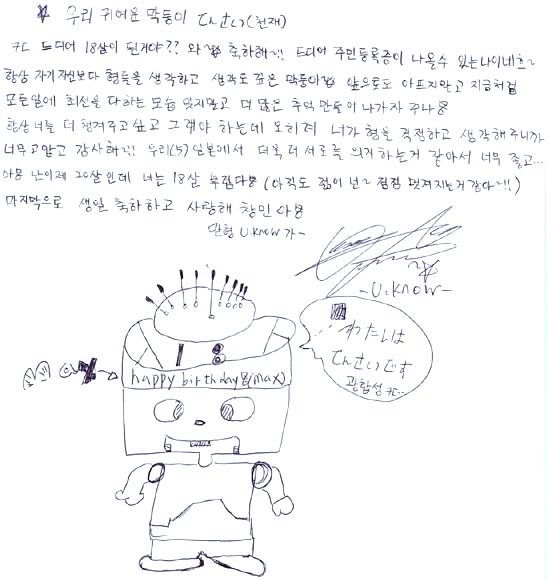 우리 귀여운 막둥이 てんさい(천재)
드디어 18살이 된거야?? 와~ 축하해~!! 드디어 주민등록증이 나올수 있는나이네크~
항상 자기자신보다 형들을 생각하고 생각도 깊은 막둥아 앞으로도 아프지말고 지금처럼
모든일에 최선을 다하는 모습 잊지말고 더 많은 추억 만들어 나가자
항상 너를 더 챙겨주고 싶고 그래야 하는데 오히려 너가 형을 걱정하고 생각해주니까
너무고맙고 감사해~!! 우리(5) 일본에서 더욱 더 서로를 의지하는거 같아서 너무 좋고...
아웅 난이제 20살인데 너는 18살 부럽다웅 (아직도 젊어 넌~ 점점 멋져지는거같아~!!)
마지막으로 생일 축하하고 사랑해 창민아웅
맏형 U.KNOW가-
-U.KNOW-
わたしは
てんさいです
광합성
18
happy birthday (max)